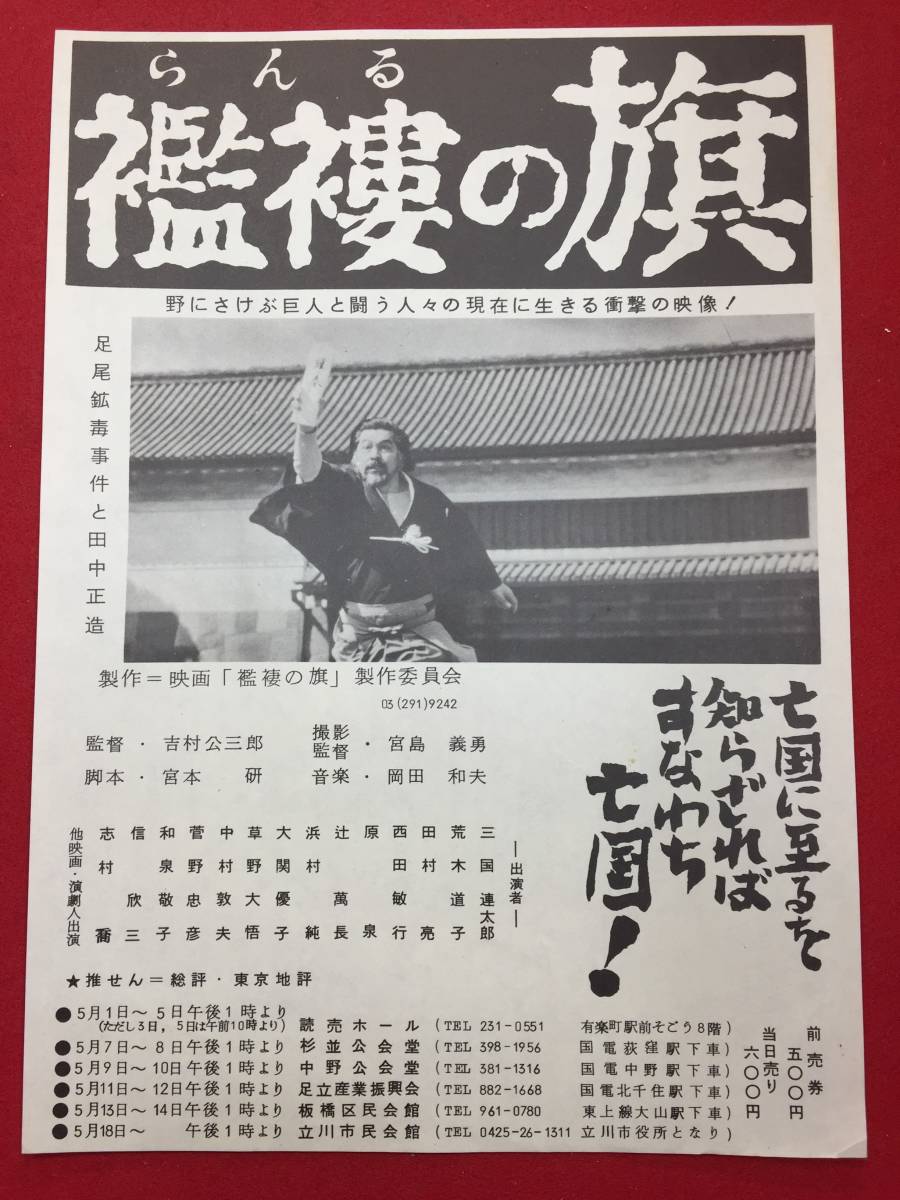 らんる
襤褸の旗
野にさけぶ巨人と闘う人々の現在に生きる衝撃の映像！
足尾鉱毒事件と田中正造
製作＝映画「襤褸の旗」製作委員会
03(291)9242
監督・吉村公三郎
撮影監督・宮島義勇
脚本・宮本 研
音楽・岡田和夫
亡国に至るを
知らざれば
すなわち
亡国！
―出演者―
三国連太郎
荒木道子
田村 亮
西田敏行
原 泉
辻 萬長
浜村 純
大関優子
草野大悟
中村敦夫
菅野忠彦
和泉敬子
信 欣三
志村 喬
他映画・演劇人出演
★推せん＝総評・東京地評
●5月1日～5日午後1時より
(ただし3日，5日は午前10時より) 読売ホール (TEL 231-0551 有楽町駅前そごう8階)
●5月7日～8日午後1時より 杉並公会堂 (TEL 398-1956 国電荻窪駅下車)
●5月9日～10日午後1時より 中野公会堂 (TEL 381-1316 国電中野駅下車)
●5月11日～12日午後1時より 足立産業振興会 (TEL 882-1668 国電北千住駅下車)
●5月13日～14日午後1時より 板橋区民会館 (TEL 961-0780 東上線大山駅下車)
●5月18日～ 午後1時より 立川市民会館 (TEL 0425-26-1311 立川市役所となり)
前売券 五〇〇円
当日売り 六〇〇円